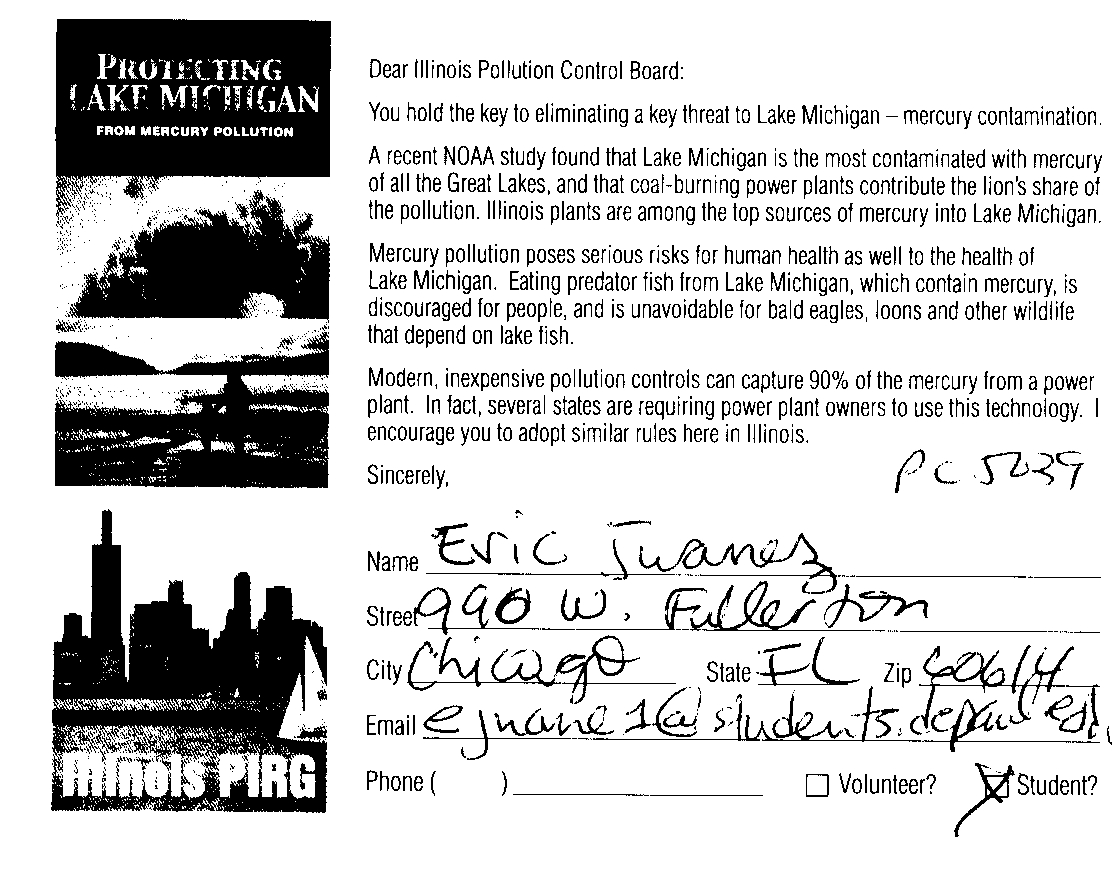 PROTECTING
LAKE MICHIGAN
FROM MERCURY POLLUTION
Illinois PIRG
Dear Illinois Pollution Control Board:
You hold the key to eliminating a key threat to Lake Michigan – mercury contamination.
A recent NOAA study found that Lake Michigan is the most contaminated with mercury
of all the Great Lakes, and that coal-burning power plants contribute the lion's share of
the pollution. Illinois plants are among the top sources of mercury into Lake Michigan.
Mercury pollution poses serious risks for human health as well to the health of
Lake Michigan. Eating predator fish from Lake Michigan, which contain mercury, is
discouraged for people, and is unavoidable for bald eagles, loons and other wildlife
that depend on lake fish.
Modern, inexpensive pollution controls can capture 90% of the mercury from a power
plant. In fact, several states are requiring power plant owners to use this technology. I
encourage you to adopt similar rules here in Illinois.
Sincerely,
PC 5239
Name Eric Juanez
Street 990 W. Fullerton
City Chicago State IL Zip 60614
Email ejuane1@students.depaul.edu
Phone ( ) Volunteer? Student?